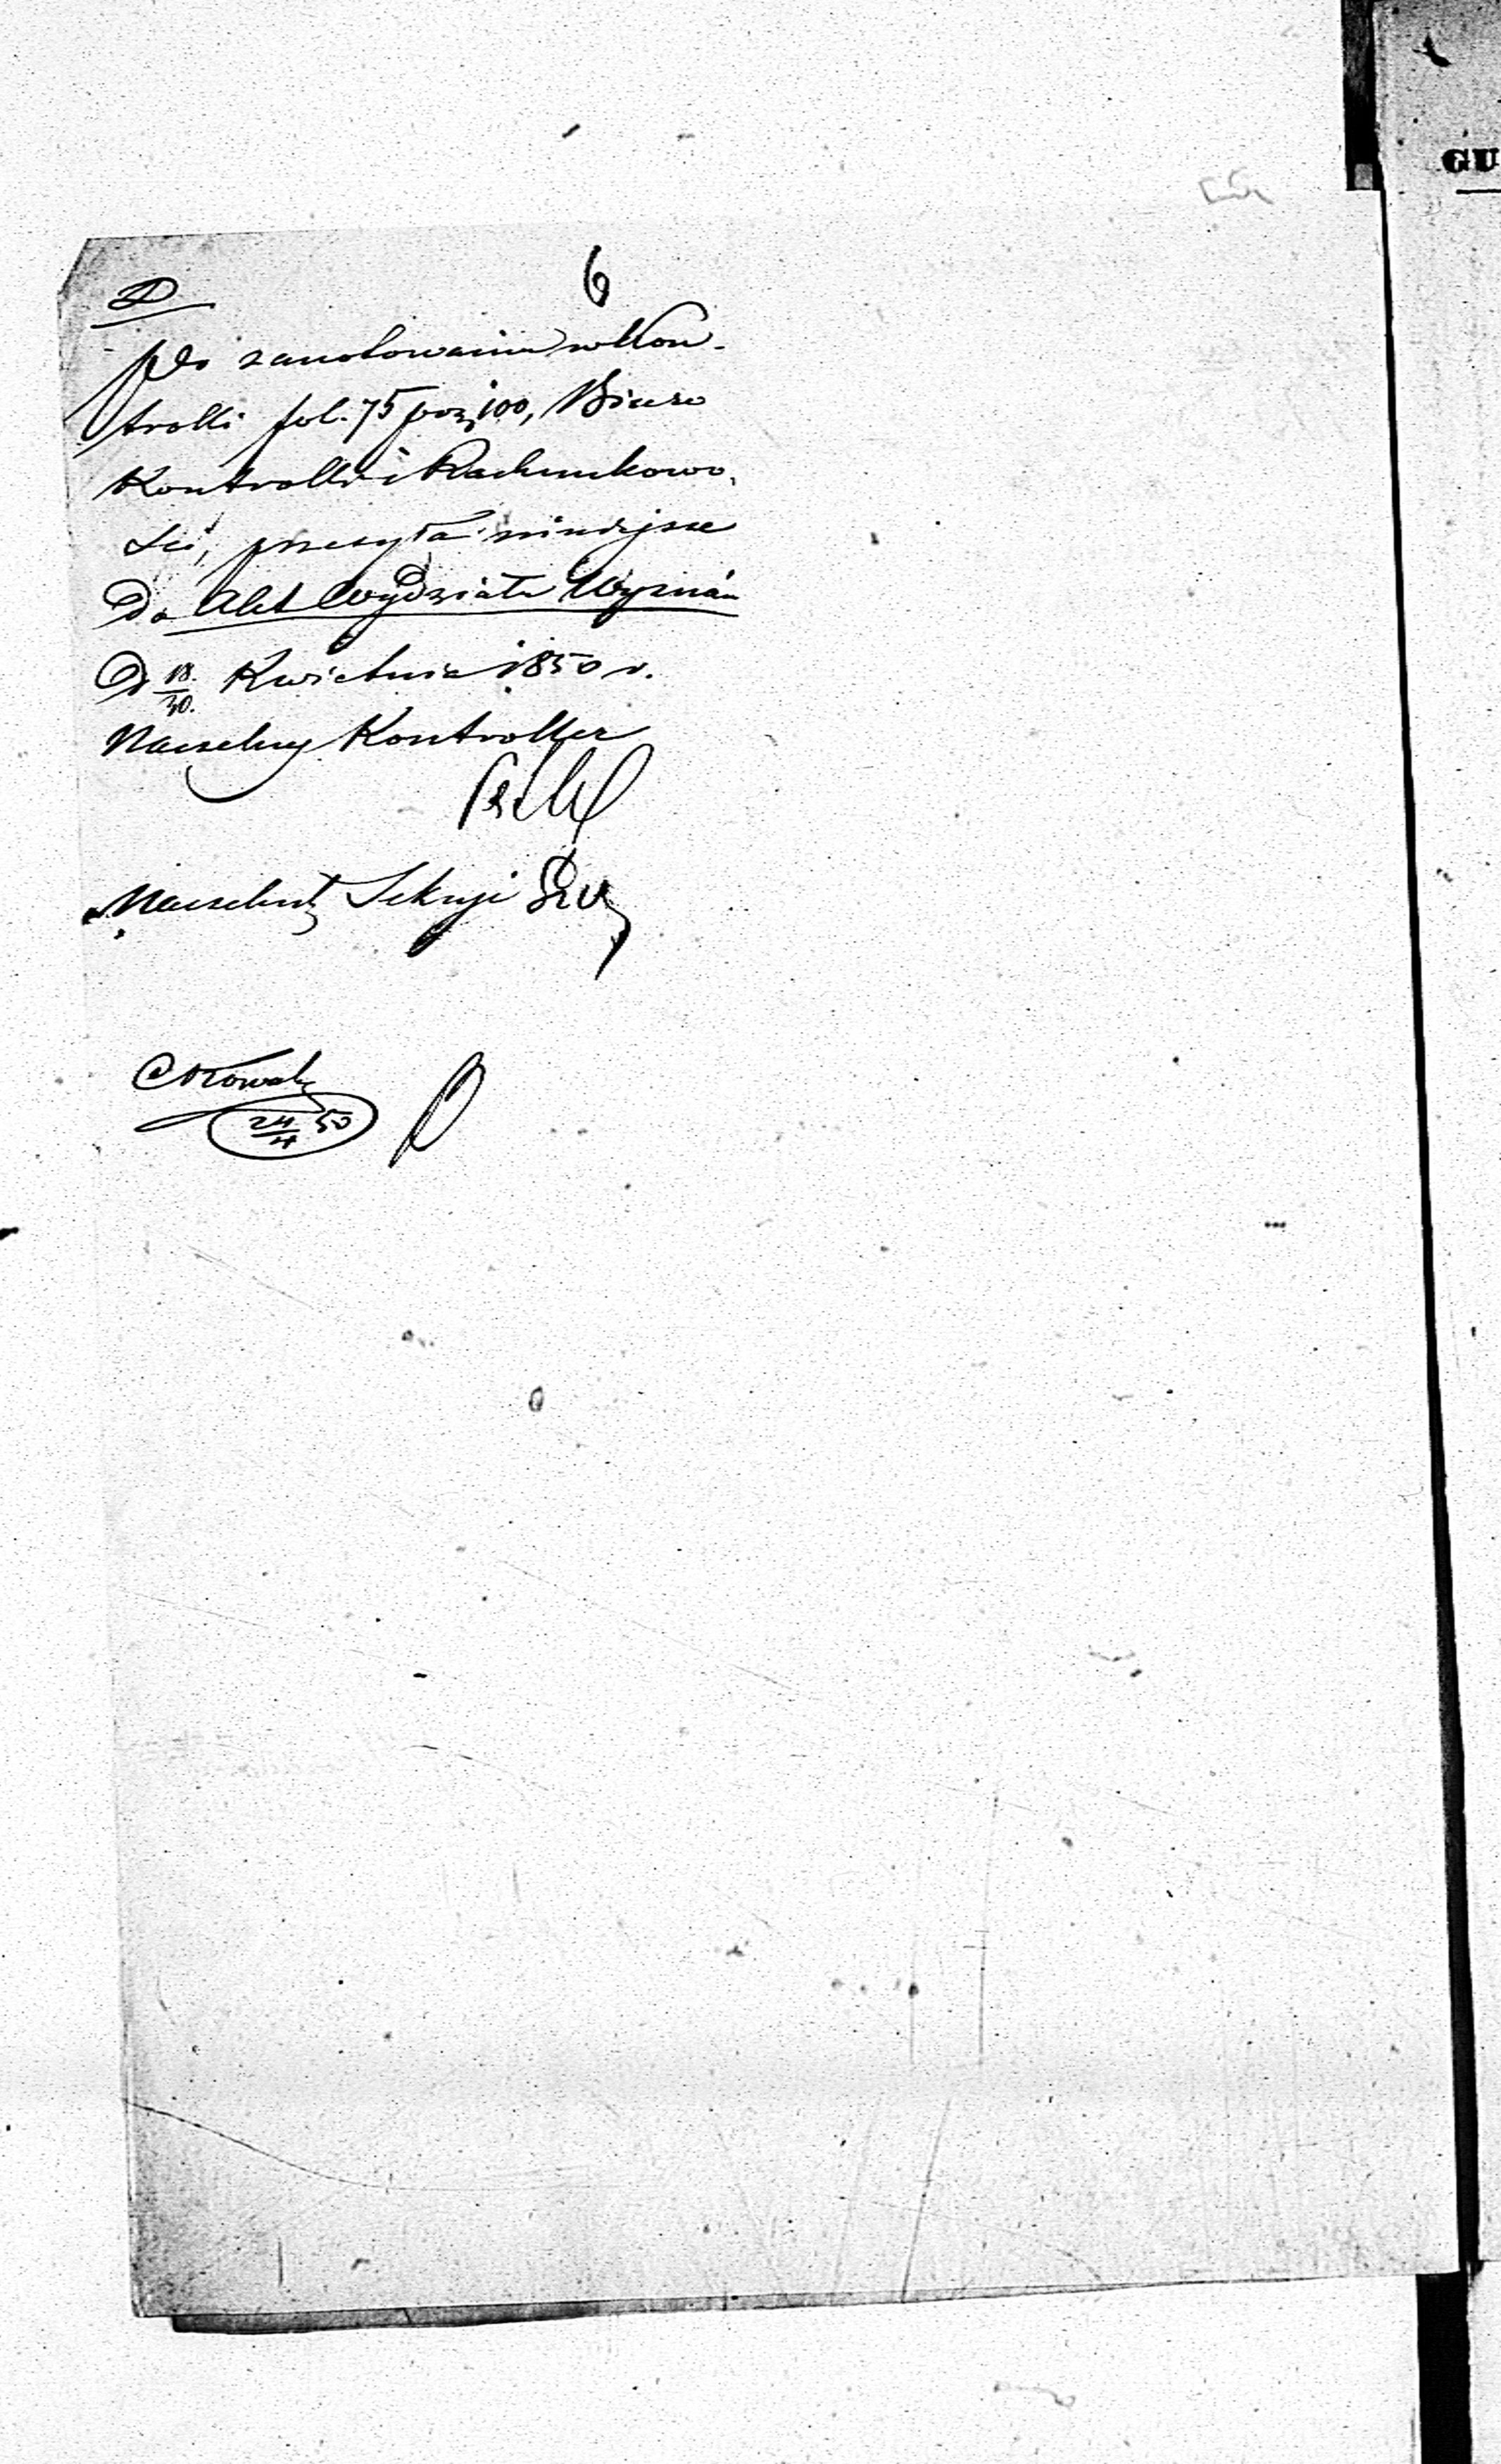 6
Po zanotowaniu w Kon-
trolli fol. 75 poz 100, Biuro
Kontrolli i Rachunkowo-
ści, przesyła niniejsze
Do Akt Wydziału Wyznań
D 18/30. Kwietnia 1850 r.
Naczelny Kontroller
Naczelnik Sekcyi
24/4 50
GU